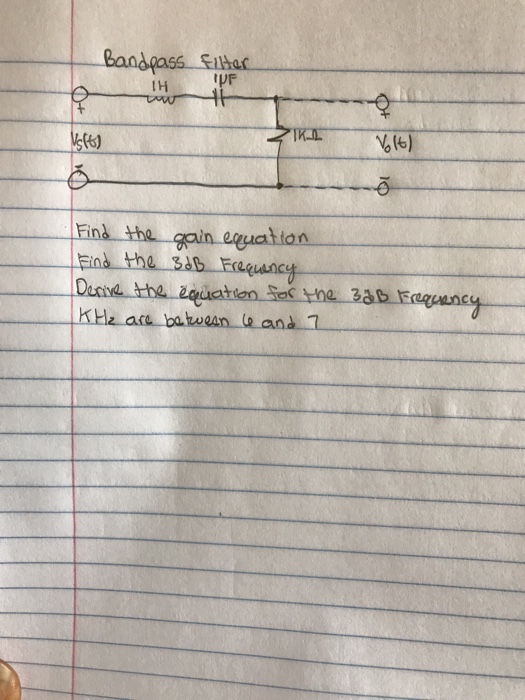 Bandpass Filter
1H 1µF
+ +
Vs(t) 1KΩ Vo(t)
- -
Find the gain equation
Find the 3dB Frequency
Derive the equation for the 3dB Frequency
KHz are between 6 and 7